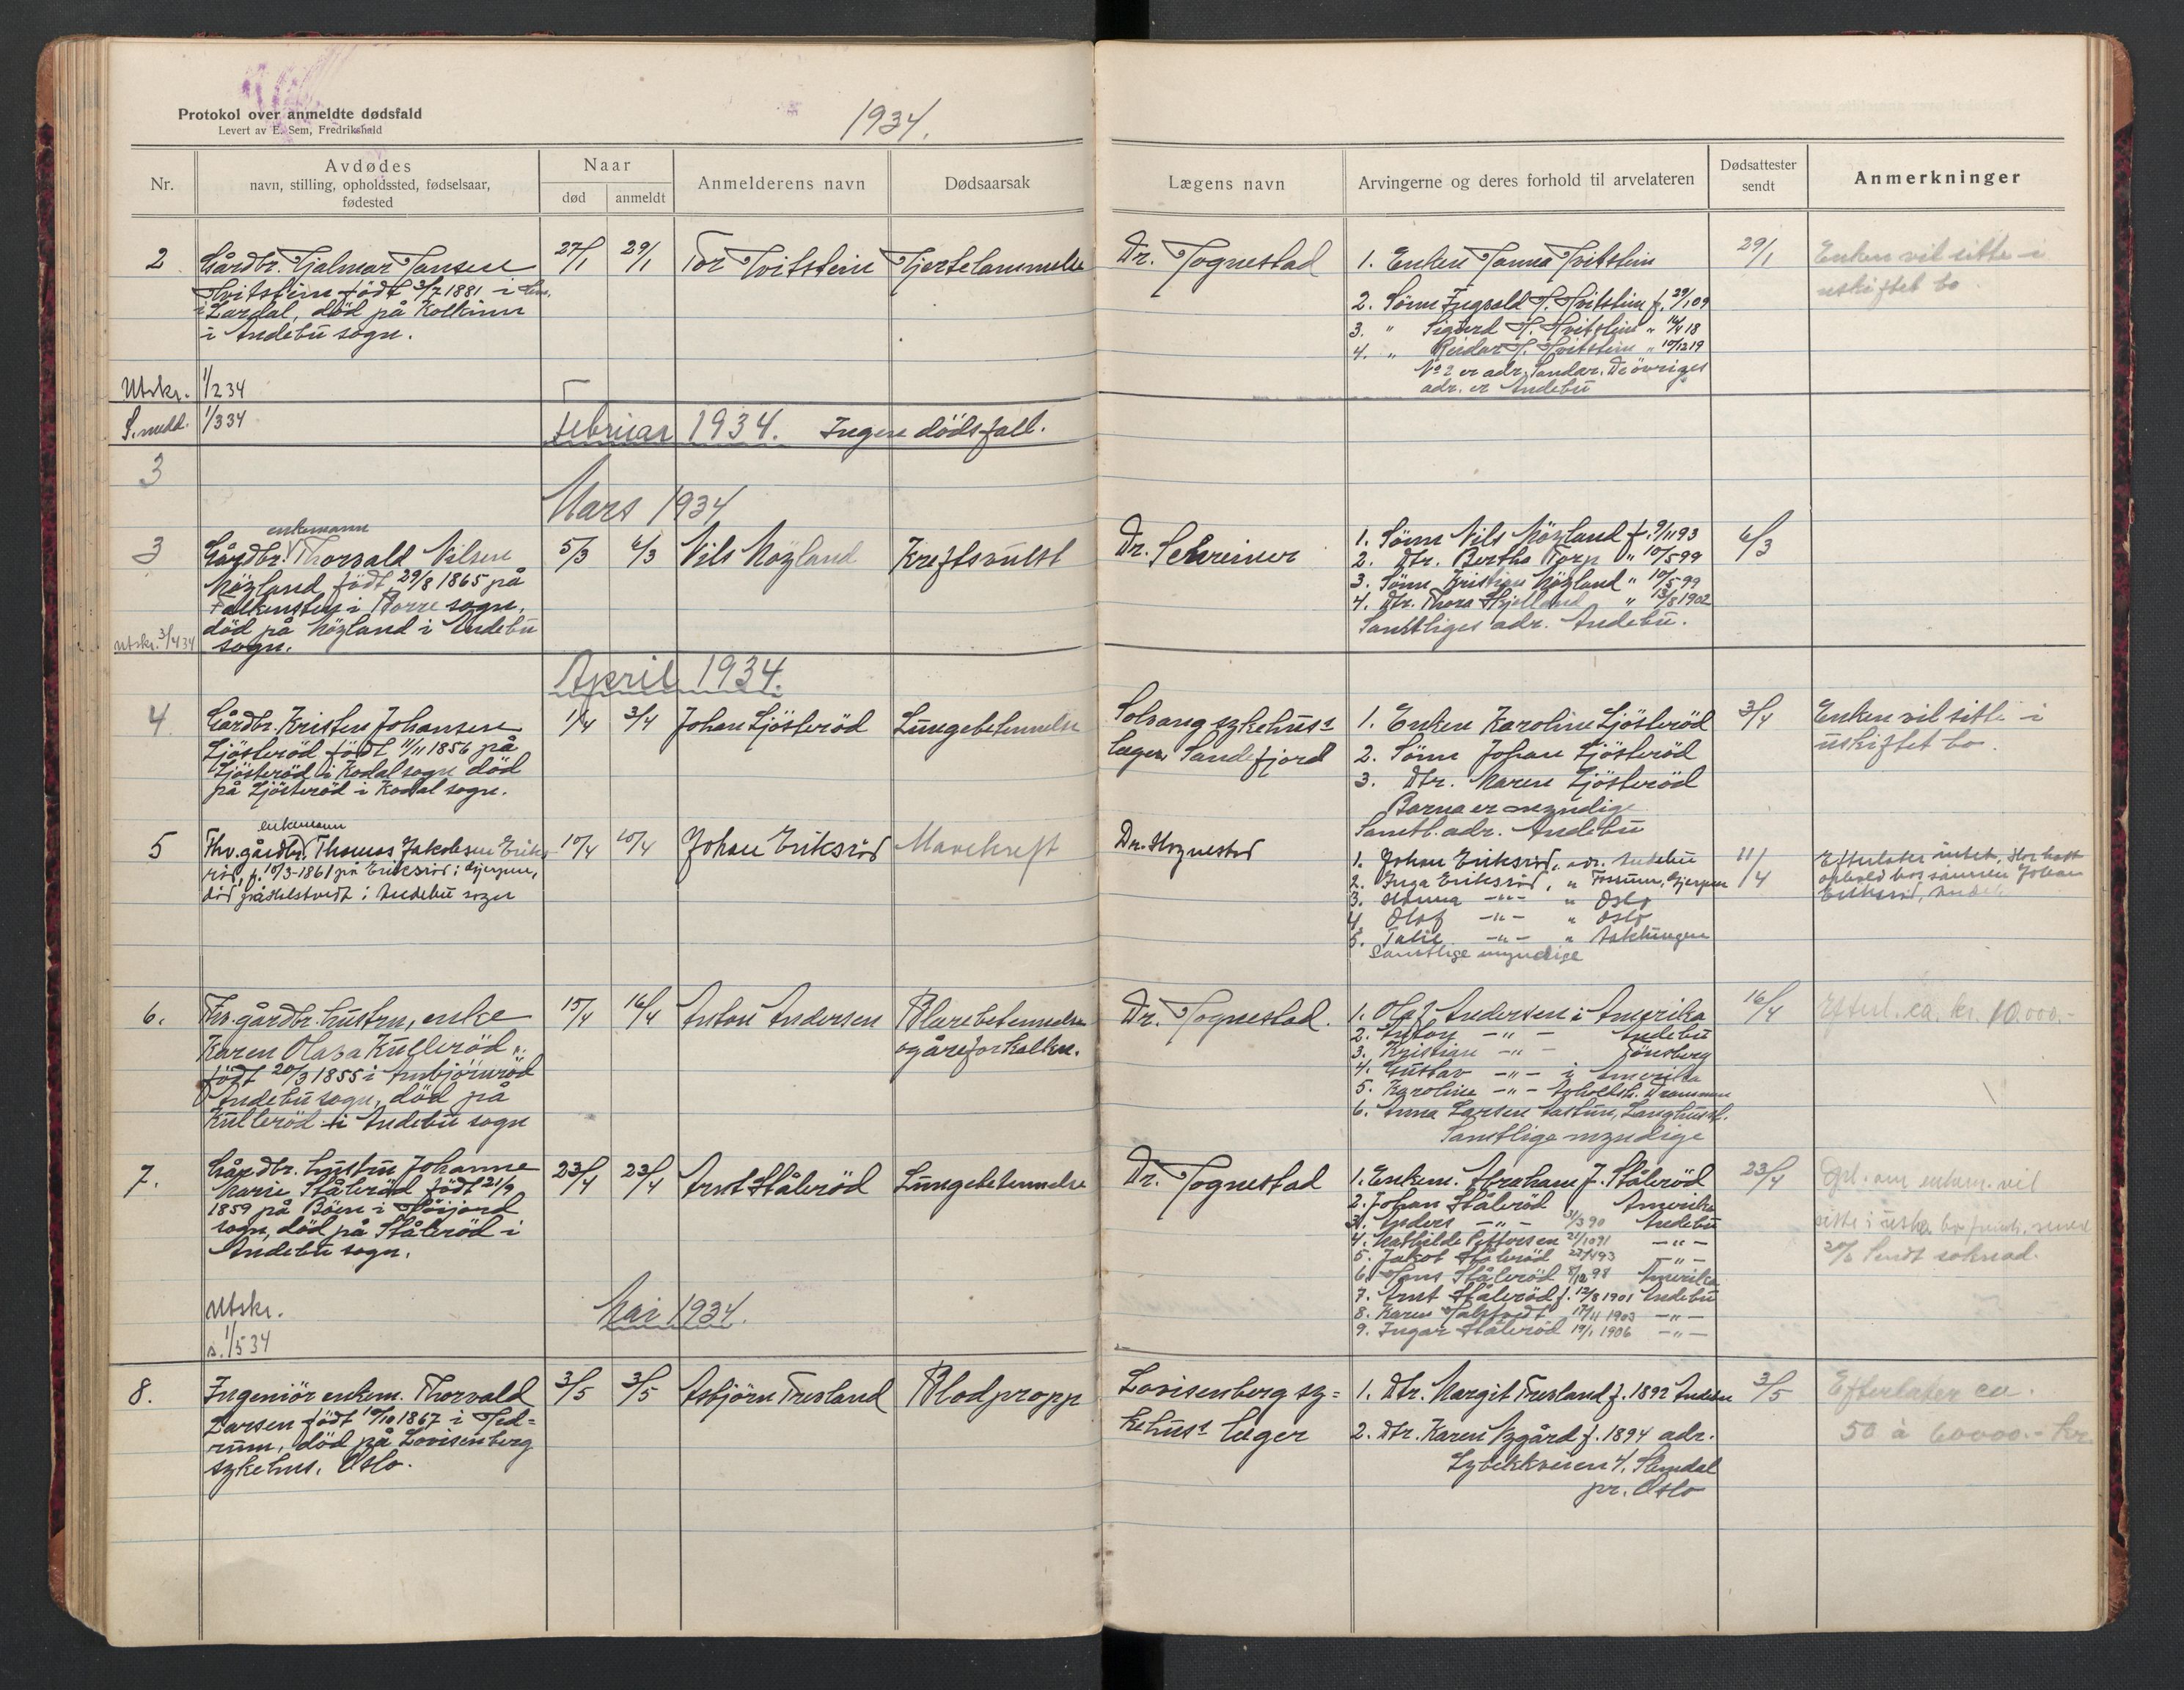 Protokol over anmeldte dødsfald
Levert av E. Sem, Fredrikshald
1934.
Nr.
Avdødes
navn, stilling, opholdssted, fødselsaar,
fødested
Naar
død
anmeldt
Anmelderens navn
Dødsaarsak
Lægens navn
Arvingerne og deres forhold til arvelateren
Dødsattester
sendt
Anmerkninger
2
Gårdbr. Hjalmar Hansen
Hvitstein födt 3/7 1881 i
i Lardal, död på Kolkinn
i Andebu sogn.
27/1
29/1
Tor Hvitstein
Hjertelammelse
Dr. Hognestad
1. Enken Hanna Hvitstein
2. Sönn Ingvald H. Hvitstein f. 29/1 09
3. " Sigurd H. Hvitstein " 14/4 18
4. " Reidar H. Hvitstein " 10/12 19
No 2 er adr. Sandar. De övriges
adr. er Andebu
29/1
Enken vil sitte i
uskiftet bo
Utskr. 1/2 34
S. medd. 1/3 34
Februar 1934. Ingen dödsfall.
3
Mars 1934
3
enkemann
Gårdbr. Thorvald Nilsen
Höyland födt 29/8 1865 på
Falkensten i Borre sogn,
död på Höyland i Andebu
sogn.
Utskr. 3/4 34
5/3
6/3
Nils Höyland
Kreftsvulst
Dr. Schreiner
1. Sönn Nils Höyland f. 9/11 93
2. Dtr. Bertha Torp " 10/5 99
3. Sönn Kristian Höyland " 10/5 99
4. Dtr. Thora Skjelland " 13/8 1902
Samtliges adr. Andebu.
6/3
April 1934.
4
Gårdbr. Kristen Johansen
Ljösteröd födt 11/11 1856 på
Ljösteröd i Kodal sogn död
på Ljösteröd i Kodal sogn.
1/4
3/4
Johan Ljösteröd
Lungebetennelse
Solvang sykehus:
læger Sandefjord
1. Enken Karoline Ljösteröd
2. Sönn Johan Ljösteröd
3. Dtr. Maren Ljösteröd
Barna er myndige
Samtl. adr. Andebu
3/4
Enken vil sitte i
uskiftet bo.
5
enkemann
Fhv. gårdbr. Thomas Jakobsen Eriks
röd, f. 10/3-1861 på Eriksröd i Gjerpen,
död på i Andebu sogn
10/4
10/4
Johan Eriksröd
Mavekreft
Dr. Hognestad
1. Johan Eriksröd, adr. Andebu
2. Inga Eriksröd, " Fossum, Gjerpen
3. Hanna -"- " Oslo
4. Olaf -"- " Oslo
5. -"- "
Samtlige myndige
11/4
Efterlater intet. Har hatt
ophold hos sönnen Johan
Eriksröd, Andebu
6.
Fhv. gårdbr. hustru, enke
Karen Olava Kulleröd
födt 20/3 1855 i Ambjörnröd
Andebu sogn, död på
Kulleröd i Andebu sogn
15/4
16/4
Anton Andersen
Blærebetennelse
og åreforkalkn.
Dr. Hognestad.
1. Olaf Andersen i Amerika
2. Anton -"- Andebu
3. Kristian -"- Tönsberg
4. Gustav -"- i Amerika
5. Karoline -"- Drammen
6. Anna Larsen
Samtlige myndige
16/4
Efterl. ca. kr. 10.000.-
7.
Gårdbr. hustru Johanne
Marie Ståleröd födt 21/9
1859 på Böen i Höijord
sogn, död på Ståleröd i
Andebu sogn.
23/4
23/4
Arnt Ståleröd
Lungebetennelse
Dr. Hognestad
1. Enkem. Abraham J. Ståleröd
2. Johan Ståleröd Amerika
3. Anders -"- 31/3 90 Andebu
4. Mathilde Pettersen 21/10 91 -"-
5. Jakob Ståleröd -"-
6. Hans Ståleröd 8/12 98 Amerika
7. Arnt Ståleröd f. 12/8 1901 Andebu
8. Karen 17/11 1903 -"-
9. Ingar Ståleröd 19/1 1906 -"-
23/4
om enkem. vil
sitte i uskr. bo
Sendt soknad.
Utskr.
s. 1/5 34
Mai 1934.
8.
Ingeniör enkem. Thorvald
Larsen födt 10/10 1867 i Hed=
rum, död på Lovisenberg
sykehus, Oslo.
3/5
3/5
Asbjörn Tresland
Blodpropp
Lovisenberg sy=
kehus: læger
1. Dtr. Margit Tresland f. 1892 Andebu
2. Dtr. Karen Nygård f. 1894 adr.
Lybekkveien 4. Slemdal
pr. Oslo
3/5
Efterlater ca.
50 à 60000.- kr.